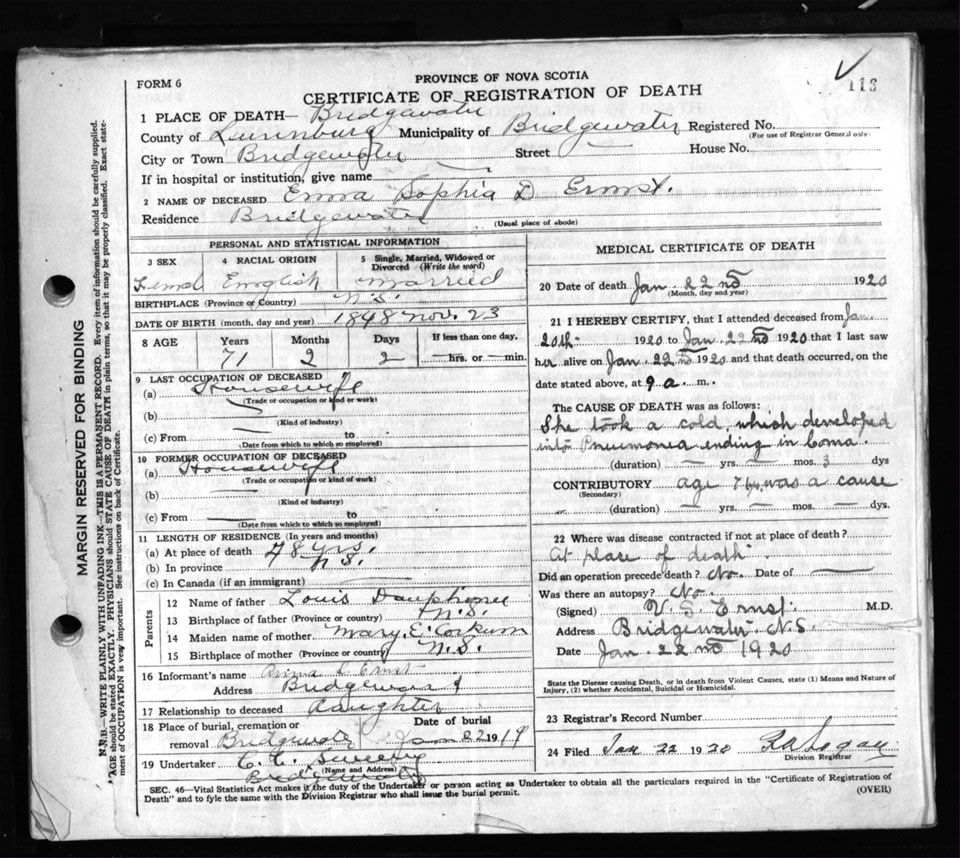 FORM 6
PROVINCE OF NOVA SCOTIA
CERTIFICATE OF REGISTRATION OF DEATH
113
1 PLACE OF DEATH— Bridgewater
County of Lunenburg Municipality of Bridgewater Registered No.
(For use of Registrar General only)
City or Town Bridgewater Street — House No.
If in hospital or institution, give name —
2 NAME OF DECEASED Emma Sophia D Ernst.
Residence Bridgewater
(Usual place of abode)
PERSONAL AND STATISTICAL INFORMATION
3 SEX 4 RACIAL ORIGIN 5 Single, Married, Widowed or Divorced (Write the word)
Female English Married
BIRTHPLACE (Province or Country) N.S.
DATE OF BIRTH (month, day and year) 1848 Nov. 23
8 AGE Years Months Days If less than one day,
71 2 2 —hrs. or —min.
9 LAST OCCUPATION OF DECEASED
(a) Housewife
(Trade or occupation or kind or work)
(b) —
(Kind of industry)
(c) From — to
(Date from which to which so employed)
10 FORMER OCCUPATION OF DECEASED
(a) Housewife
(Trade or occupation or kind of work)
(b) —
(Kind of industry)
(c) From — to
(Date from which to which so employed)
11 LENGTH OF RESIDENCE (In years and months)
(a) At place of death 48 yrs.
(b) In province N.S.
(c) In Canada (if an immigrant) —
Parents
12 Name of father Louis Dauphinee
13 Birthplace of father (Province or country) N.S.
14 Maiden name of mother Mary E. Corkum
15 Birthplace of mother (Province or country) N.S.
16 Informant's name Ernst
Address Bridgewater
17 Relationship to deceased Daughter
18 Place of burial, cremation or Date of burial
removal Bridgewater Jan 22 1919
19 Undertaker
(Name and Address)
Bridgewater
MEDICAL CERTIFICATE OF DEATH
20 Date of death Jan. 22nd 1920
(Month, day and year)
21 I HEREBY CERTIFY, that I attended deceased from Jan.
20th 1920 to Jan 22nd 1920 that I last saw
her alive on Jan 22nd 1920 and that death occurred, on the
date stated above, at 9 a. m.
The CAUSE OF DEATH was as follows:
She took a cold, which developed
into Pneumonia ending in Coma.
(duration) — yrs. — mos. 3 dys
CONTRIBUTORY age 71 was a cause
(Secondary)
(duration) — yrs. — mos. — dys.
22 Where was disease contracted if not at place of death?
At place of death
Did an operation precede death? No. Date of —
Was there an autopsy? No.
(Signed) V. S. Ernst. M.D.
Address Bridgewater N.S.
Date Jan. 22nd 1920
State the Disease causing Death, or in death from Violent Causes, state (1) Means and Nature of
Injury, (2) whether Accidental, Suicidal or Homicidal.
23 Registrar's Record Number
24 Filed Jan 22 1920 Logan
Division Registrar
SEC. 46—Vital Statistics Act makes it the duty of the Undertaker or person acting as Undertaker to obtain all the particulars required in the "Certificate of Registration of
Death" and to fyle the same with the Division Registrar who shall issue the burial permit. (OVER)
MARGIN RESERVED FOR BINDING
N.B.—WRITE PLAINLY WITH UNFADING INK—THIS IS A PERMANENT RECORD. Every item of information should be carefully supplied.
AGE should be stated EXACTLY. PHYSICIANS should STATE CAUSE OF DEATH in plain terms, so that it may be properly classified. Exact state-
ment of OCCUPATION is very important. See instructions on back of Certificate.